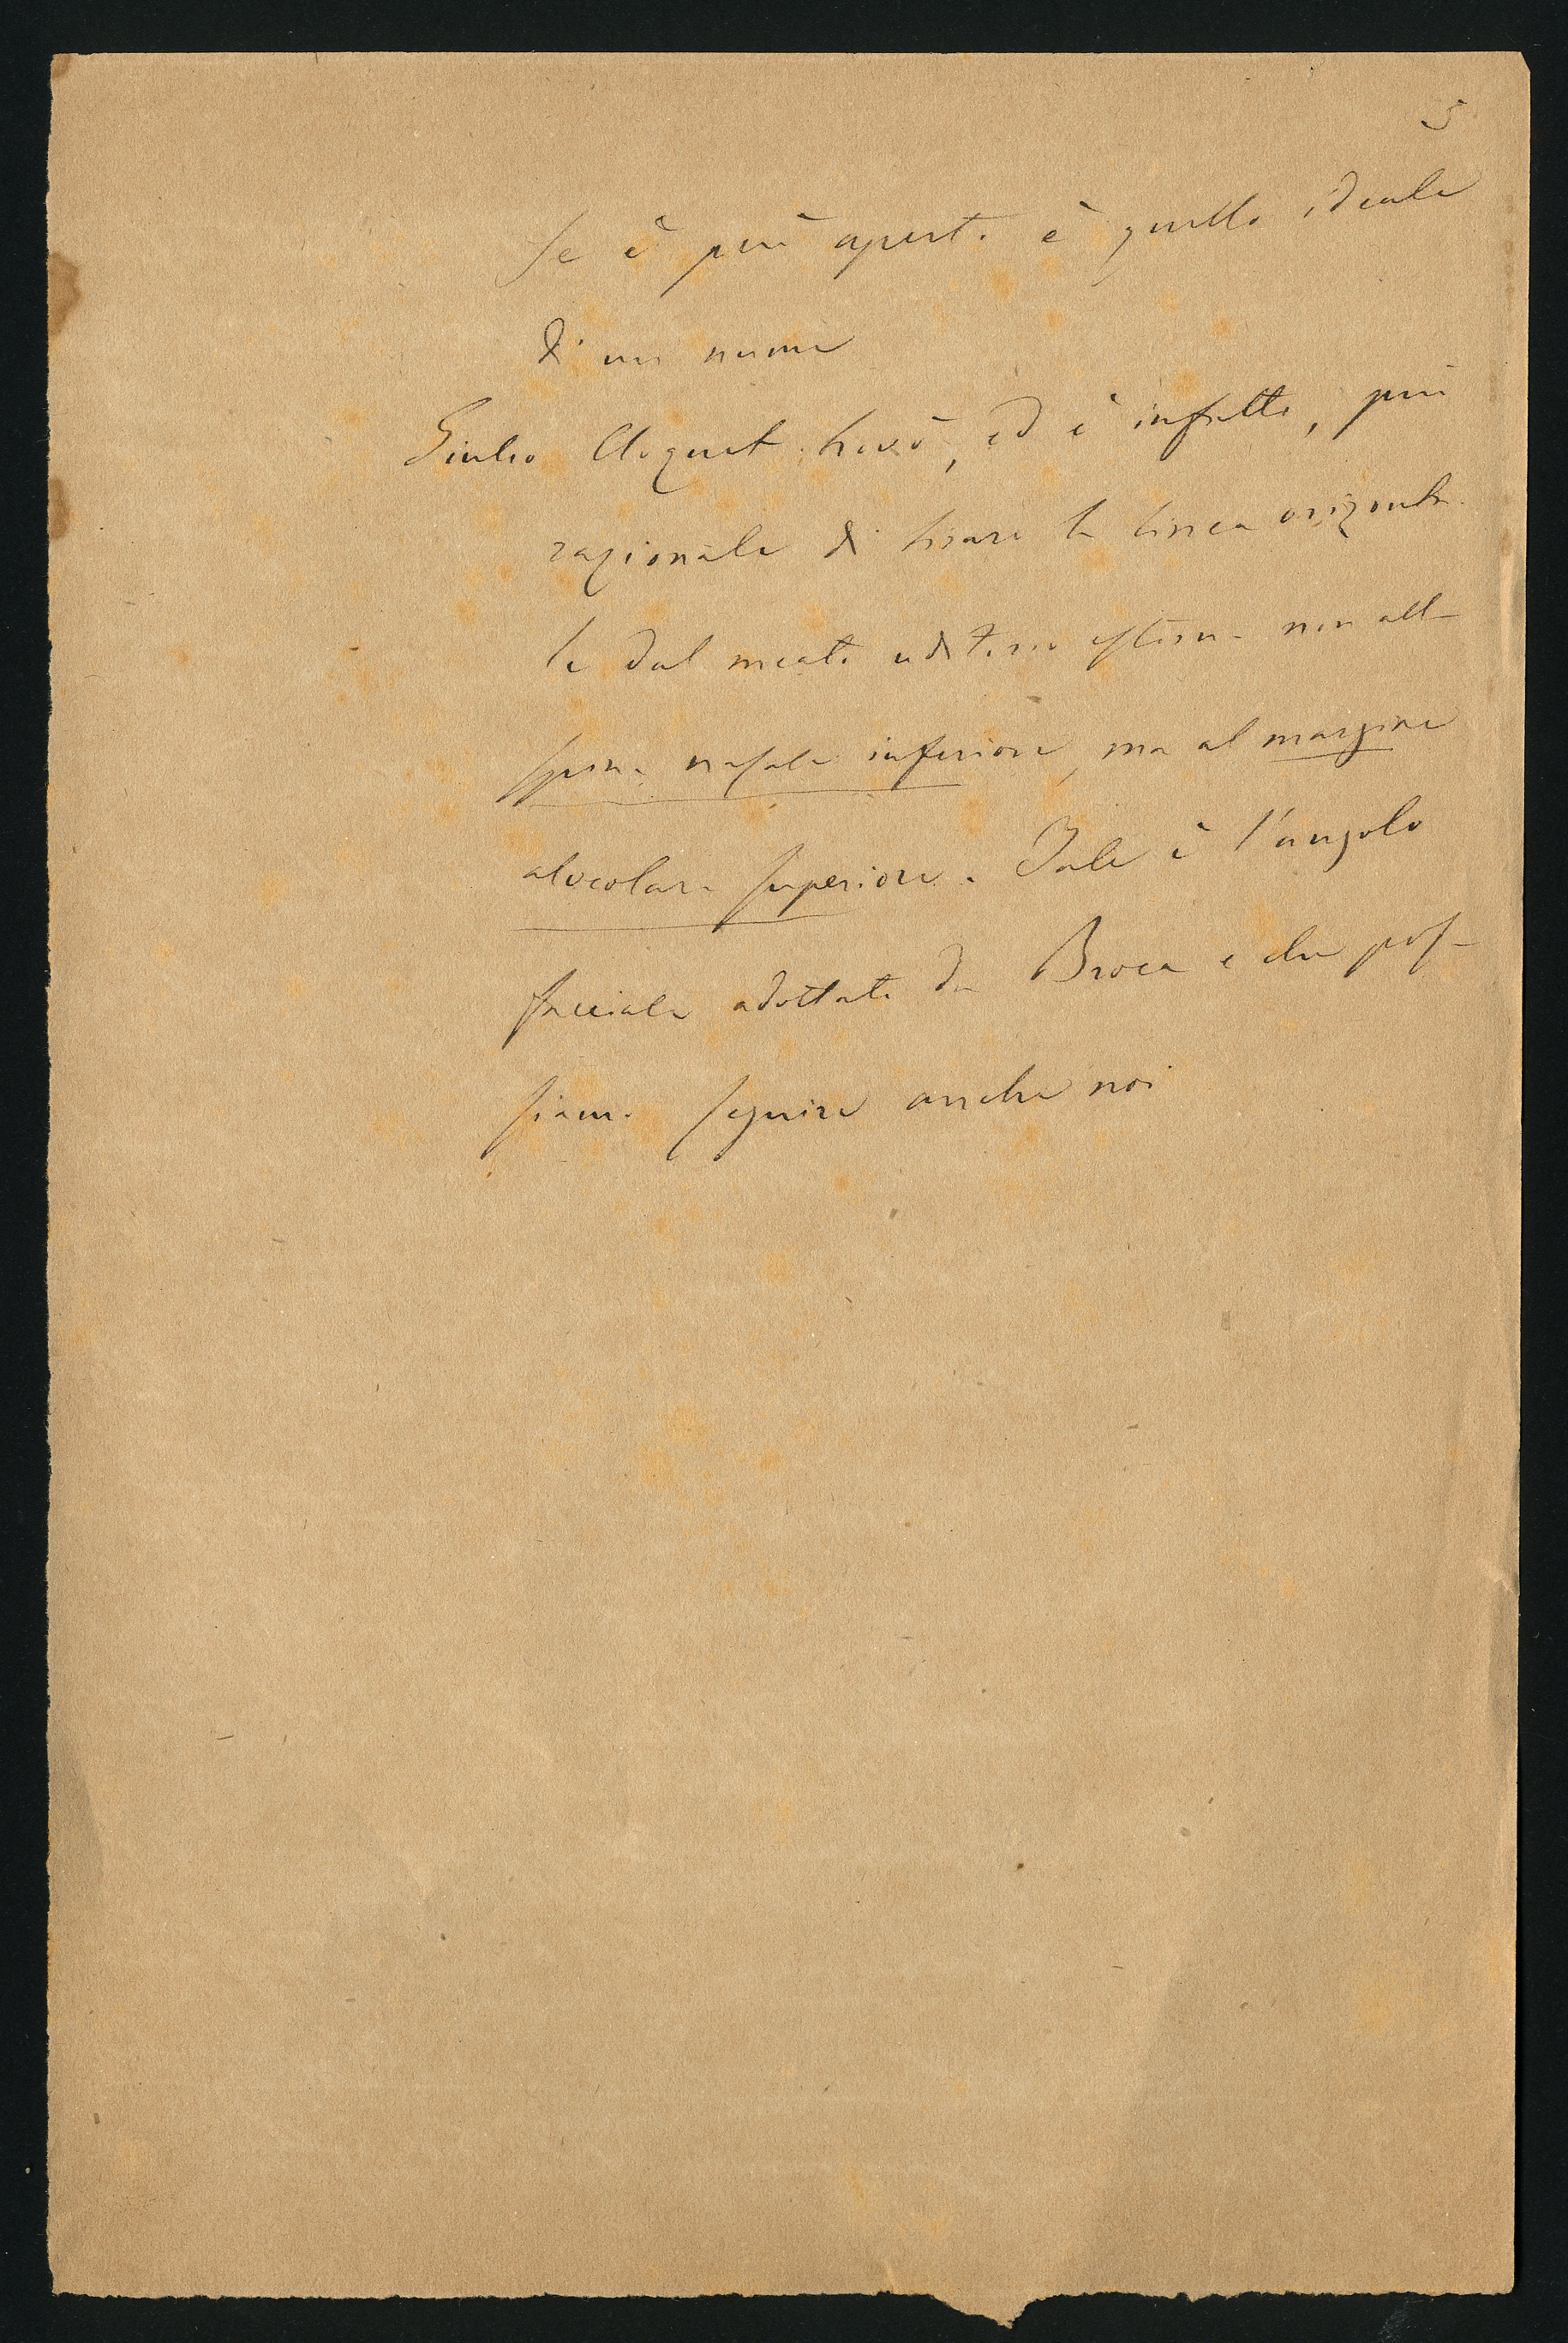 5
Se è più aperto è quello ideale
di un nume
Giulio Cloquet trovò, ed è infatti, più
razionale di tirare la linea orizonta-
le dal meato uditorio esterno non alla
spina nasale inferiore, ma al margine
alveolare superiore. Tale è l'angolo
facciale adottato da Broca e che pos-
siamo seguire anche noi